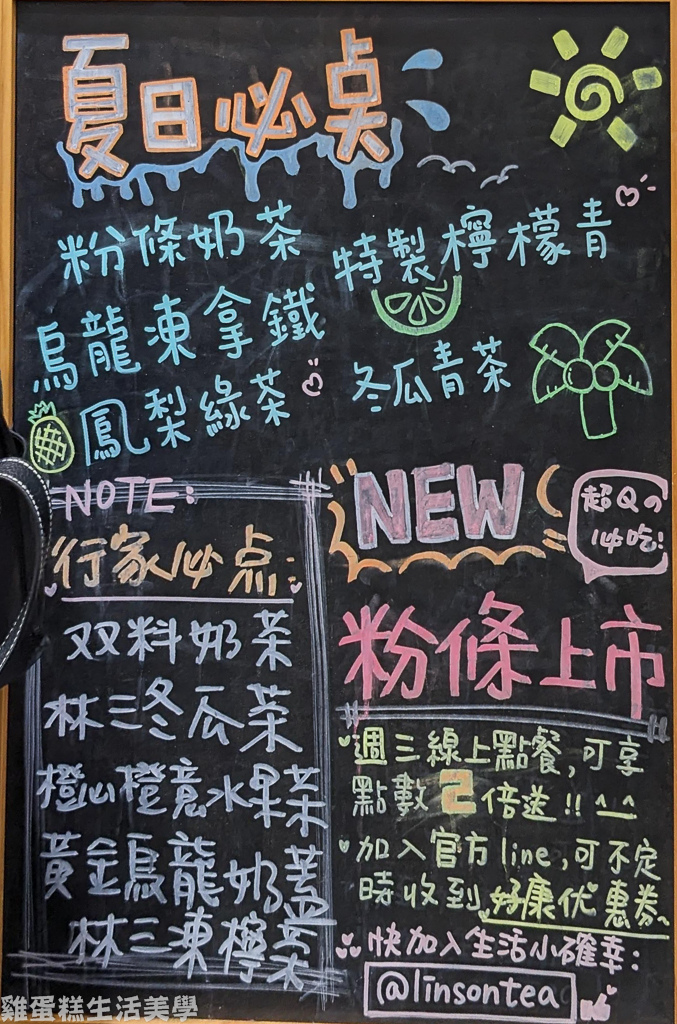 夏日必点
粉條奶茶
特製檸檬青
烏龍凍拿鐵
鳳梨綠茶
冬瓜青茶
NOTE:
行家必点:
双料奶茶
林三冬瓜茶
橙心橙意水果茶
黃金烏龍奶蓋
林三凍檸茶
NEW
超Qの
必吃!
粉條上市
週三線上點餐,可享
點數2倍送!! ^_^
加入官方line,可不定
時收到好康优惠券
快加入生活小確幸:
@linsontea
雞蛋糕生活美學